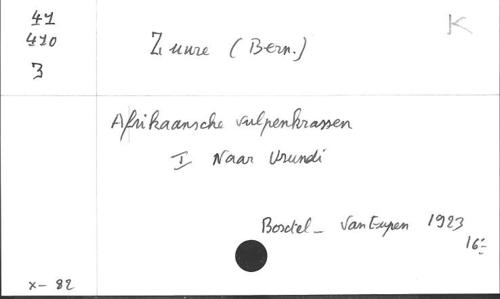 41
410
3
K
Zuure (Bern.)
Afrikaansche vulpenkrassen
I Naar Urundi
Boxtel - Van Eupen 1923
16:
x - 82